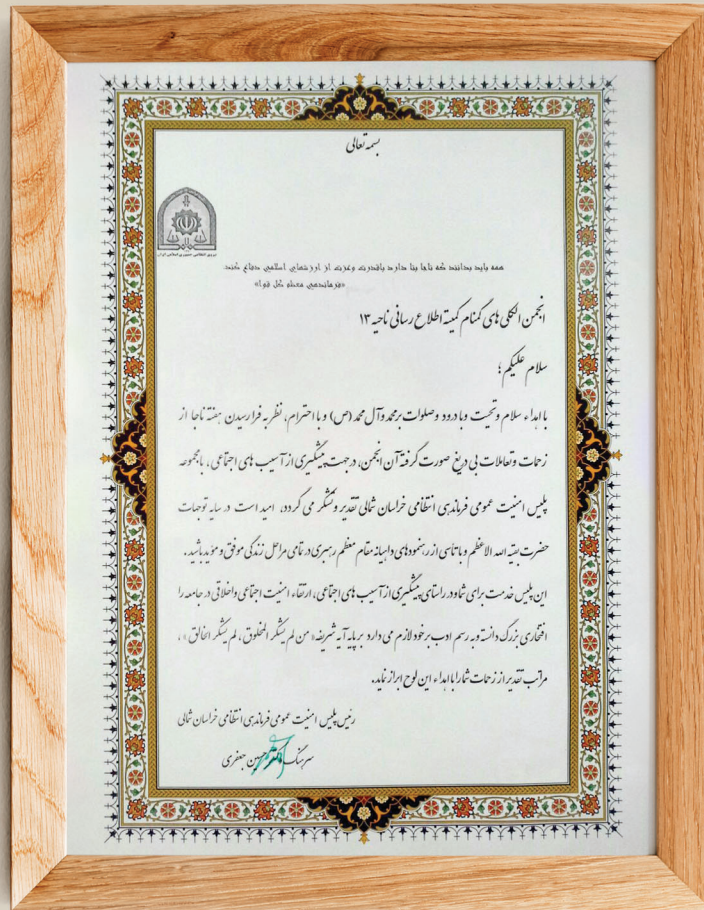 بسمه تعالی
نیروی انتظامی جمهوری اسلامی ایران
همه باید بدانند که ناجا بنا دارد باقدرت وعزت از ارزشهای اسلامی دفاع کند
«فرماندهی معظم کل قوا»
انجمن الکلی های گمنام کمیته اطلاع رسانی ناحیه ۱۳
سلام علیکم ؛
با اهداء سلام وتحیت وبا درود وصلوات برمحمد وآل محمد (ص) وبا احترام، نظر به فرارسیدن هفته ناجا از
زحمات وتعاملات بی دریغ صورت گرفته آن انجمن، درجهت پیشگیری از آسیب های اجتماعی ، بامجموعه
پلیس امنیت عمومی فرماندهی انتظامی خراسان شمالی تقدیر وتشکر می گردد، امید است در سایه توجهات
حضرت بقیه الله الاعظم وباتأسی از رهنمودهای داهیانه مقام معظم رهبری در تمامی مراحل زندگی موفق و مؤید باشید.
این پلیس خدمت برای شمادر راستای پیشگیری از آسیب های اجتماعی، ارتقاء امنیت اجتماعی واخلاقی در جامعه را
افتخاری بزرگ دانسته وبه رسم ادب برخود لازم می دارد بر پایه آیه شریفه« من لم یشکر المخلوق ، لم یشکر الخالق » ،
مراتب تقدیر از زحمات شمارا با اهداء این لوح ابراز نماید.
رئیس پلیس امنیت عمومی فرماندهی انتظامی خراسان شمالی
سرهنگ حسین جعفری